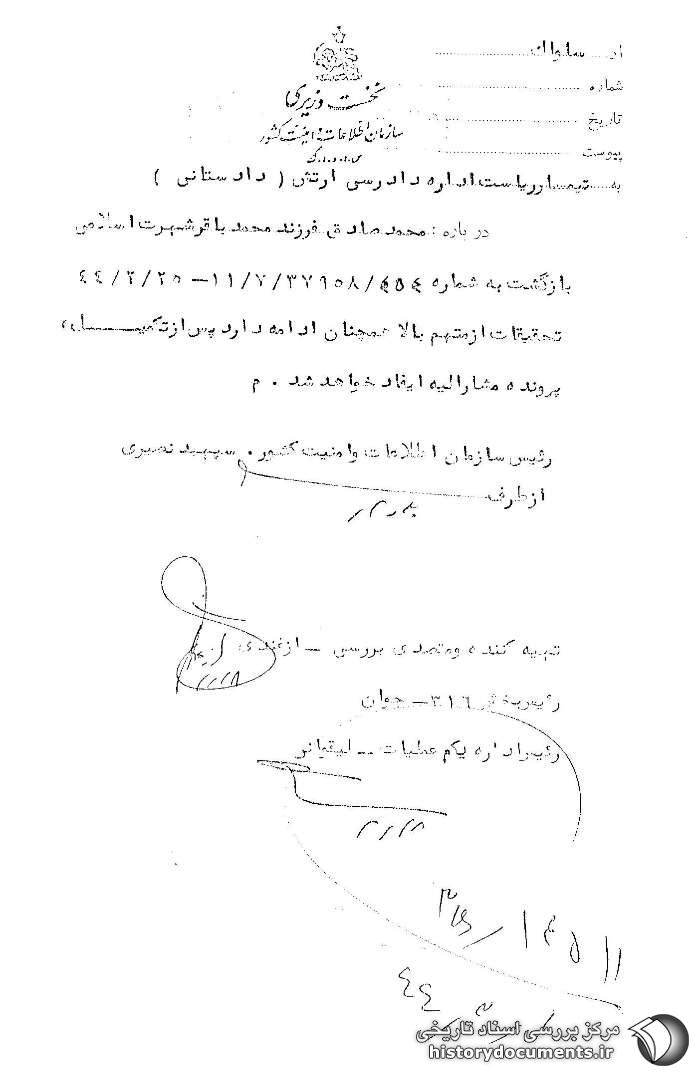 نخست وزیری
سازمان اطلاعات و امنیت کشور
س.ا.و.ا.ک
از ساواك
شماره
تاریخ
پیوست
به تیمسار ریاست اداره دادرسی ارتش ( دادستانی )
درباره : محمد صادق فرزند محمد باقر شهرت اسلامی
بازگشت به شماره ٤٥٤/٣٧٩٠٨/٧/١١ - ٤٤/٢/٢٥
تحقیقات از متهم بالا همچنان ادامه دارد پس از تکمیل
پرونده مشارالیه ایفاد خواهد شد . م
رئیس سازمان اطلاعات و امنیت کشور . سپهبد نصیری
از طرف
تهیه کننده و متصدی بررسی - ازغندی
رئیس بخش ٣١٦ - جوان
رئیس اداره یکم عملیات -
٤٤
مرکز بررسی اسناد تاریخی
historydocuments.ir